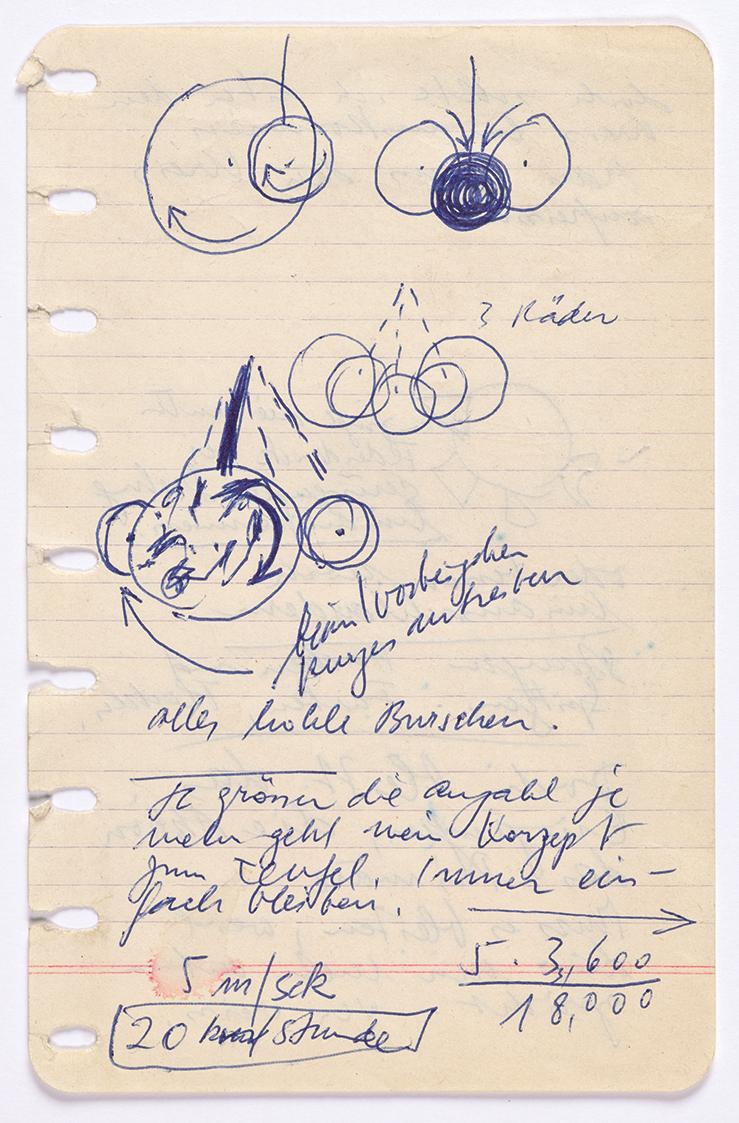 3 Räder
beim/vorbeigehen
kurzes antreiben
alles hohle Burschen.
Je grösser die anzahl je
mehr geht mein Konzept
zum Teufel. Immer ein-
fach bleiben.
5 m/sek
5 · 3,600
18,000
20 km/stunde